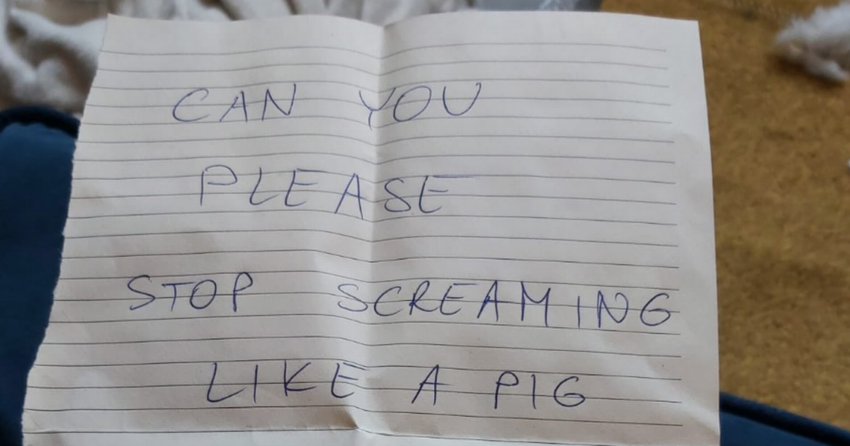 CAN YOU
PLEASE
STOP SCREAMING
LIKE A PIG